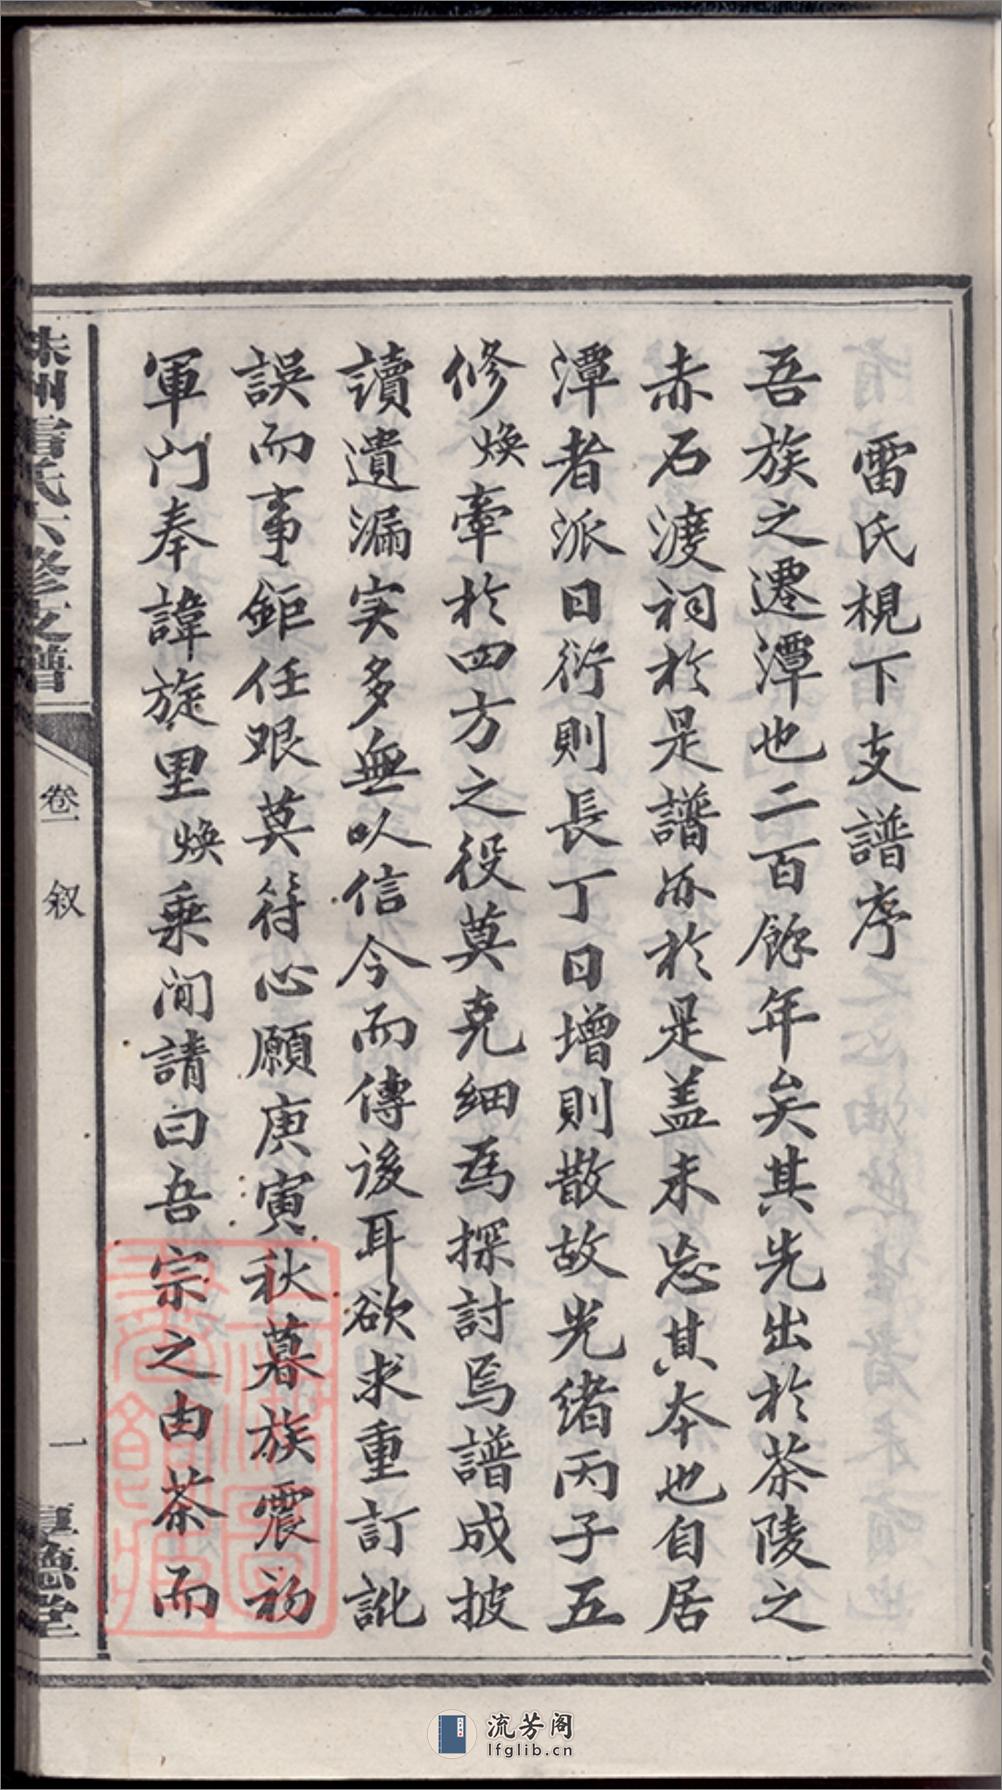 雷氏梘下支譜序
吾族之遷潭也二百餘年矣其先出於茶陵之
赤石渡祠於是譜亦於是盖未忘其本也自居
潭者派日衍則長丁日增則散故光绪丙子五
修煥牽於四方之役莫克細為探討焉譜成披
讀遺漏实多無以信今而傳後耳欲求重訂訛
誤而事鉅任艰莫符心願庚寅秋暮族震初
軍門奉諱旋里煥乘间請曰吾宗之由茶而
株洲雷氏六修支譜
卷一 叙
一
厚德堂
流芳阁
lfglib.cn